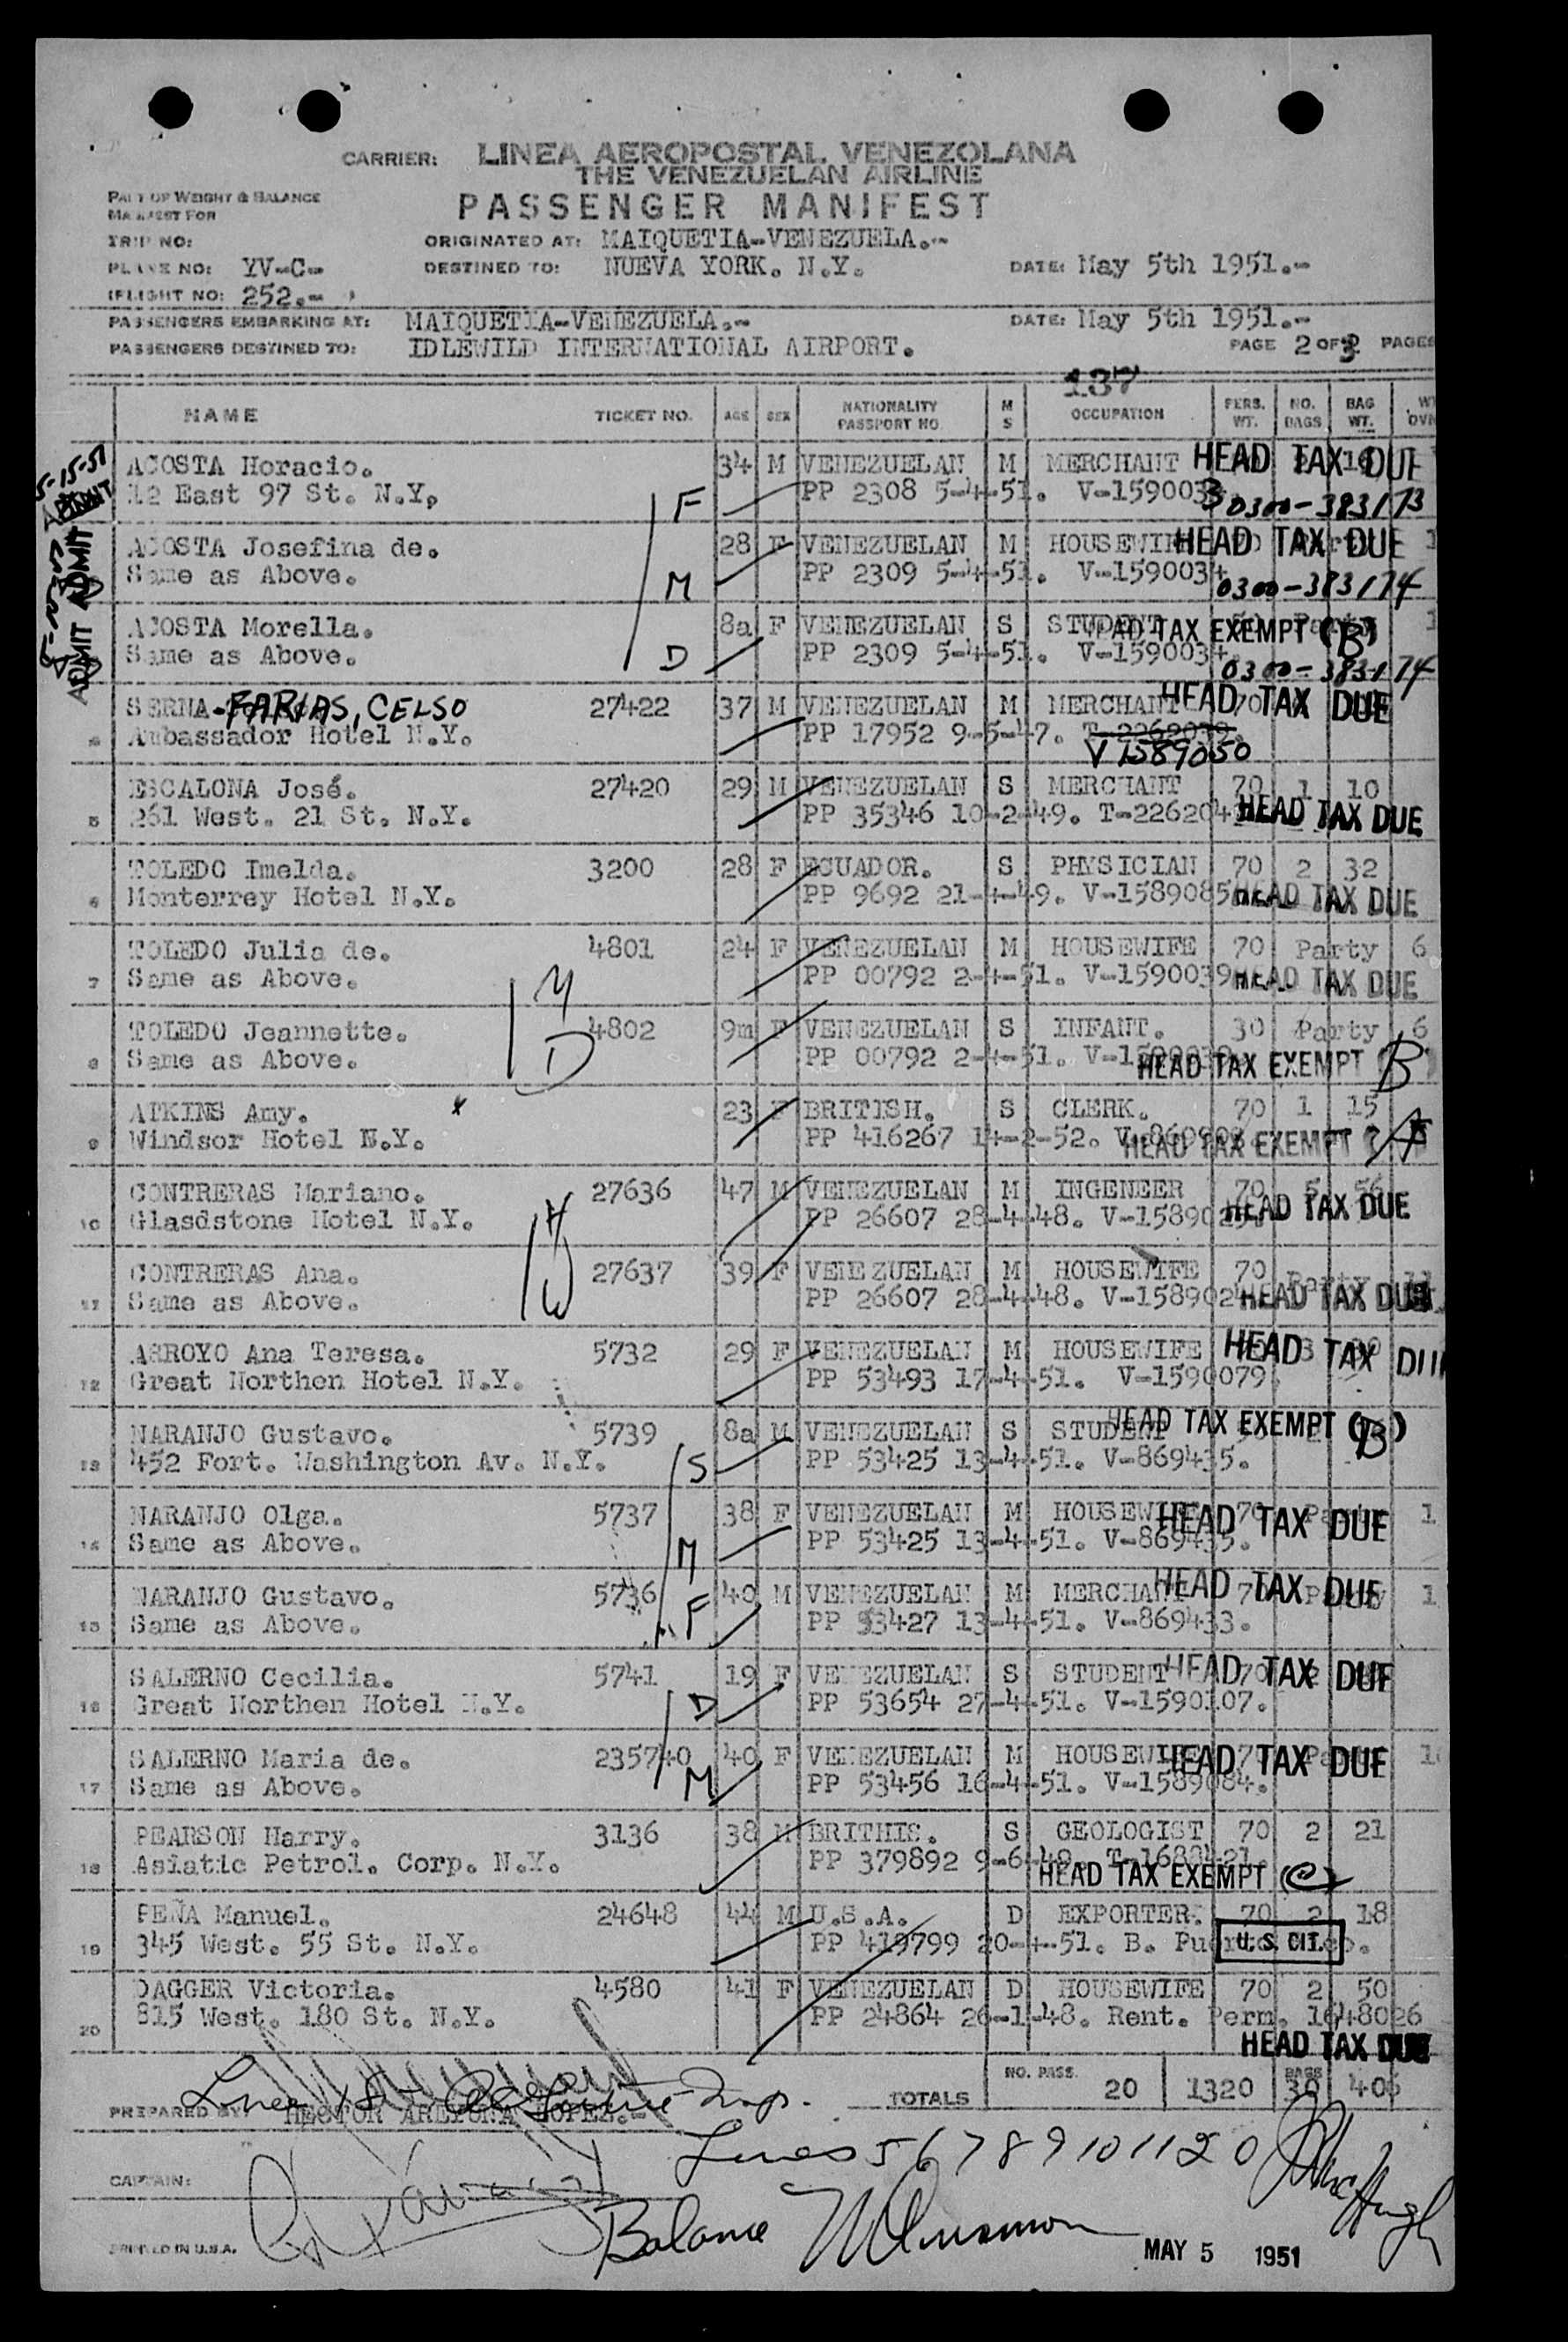 CARRIER: LINEA AEROPOSTAL VENEZOLANA
THE VENEZUELAN AIRLINE
PART OF WEIGHT & BALANCE
MANIFEST FOR
PASSENGER MANIFEST
TRIP NO:
ORIGINATED AT: MAIQUETIA-VENEZUELA.-
PLANE NO: YV-C-
DESTINED TO: NUEVA YORK. N.Y.
DATE: May 5th 1951.-
FLIGHT NO: 252.-
PASSENGERS EMBARKING AT: MAIQUETIA-VENEZUELA.-
DATE: May 5th 1951.-
PASSENGERS DESTINED TO: IDLEWILD INTERNATIONAL AIRPORT.
PAGE 2 OF 3 PAGES
137
NAME TICKET NO. AGE SEX NATIONALITY PASSPORT NO M S OCCUPATION PERS. WT. NO. BAGS BAG WT.
5-15-51
ADMIT
ADMIT
ADMIT
ACOSTA Horacio. 34 M VENEZUELAN M MERCHANT HEAD TAX DUE
12 East 97 St. N.Y. F PP 2308 5-4-51. V-1590033 0300-383173
ACOSTA Josefina de. 28 F VENEZUELAN M HOUSEWIFE HEAD TAX DUE
Same as Above. M PP 2309 5-4-51. V-1590034 0300-383174
ACOSTA Morella. 8a F VENEZUELAN S STUDENT HEAD TAX EXEMPT (B)
Same as Above. D PP 2309 5-4-51. V-1590034 0300-383174
SERNA-FARIAS, CELSO 27422 37 M VENEZUELAN M MERCHANT 70 HEAD TAX DUE
Ambassador Hotel N.Y. PP 17952 9-5-47. T-2262039.
V 1589050
ESCALONA José. 27420 29 M VENEZUELAN S MERCHANT 70 1 10
5 261 West. 21 St. N.Y. PP 35346 10-2-49. T-226204 HEAD TAX DUE
TOLEDO Imelda. 3200 28 F ECUADOR. S PHYSICIAN 70 2 32
6 Monterrey Hotel N.Y. PP 9692 21-4-49. V-1589085 HEAD TAX DUE
TOLEDO Julia de. 4801 24 F VENEZUELAN M HOUSEWIFE 70 Party 6
7 Same as Above. M PP 00792 2-4-51. V-1590039 HEAD TAX DUE
TOLEDO Jeannette. 4802 9m F VENEZUELAN S INFANT. 30 Party 6
8 Same as Above. D PP 00792 2-4-51. V-1590039. HEAD TAX EXEMPT B
ATKINS Amy. x 23 F BRITISH. S CLERK. 70 1 15
9 Windsor Hotel N.Y. PP 416267 14-2-52. HEAD TAX EXEMPT A
CONTRERAS Mariano. 27636 47 M VENEZUELAN M INGENEER 70 5 56
10 Glasdstone Hotel N.Y. H PP 26607 28-4-48. HEAD TAX DUE
CONTRERAS Ana. 27637 39 F VENEZUELAN M HOUSEWIFE 70 Party
11 Same as Above. W PP 26607 28-4-48. V-158902 HEAD TAX DUE
ARROYO Ana Teresa. 5732 29 F VENEZUELAN M HOUSEWIFE HEAD TAX DUE
12 Great Northen Hotel N.Y. PP 53493 17-4-51. V-1590079.
NARANJO Gustavo. 5739 8a M VENEZUELAN S STUDENT HEAD TAX EXEMPT (B)
13 452 Fort. Washington Av. N.Y. S PP 53425 13-4-51. V-869435.
NARANJO Olga. 5737 38 F VENEZUELAN M HOUSEWIFE 70 HEAD TAX DUE 1
14 Same as Above. M PP 53425 13-4-51. V-869435.
NARANJO Gustavo. 5736 40 M VENEZUELAN M MERCHANT 70 HEAD TAX DUE 1
15 Same as Above. F PP 53427 13-4-51. V-869433.
SALERNO Cecilia. 5741 19 F VENEZUELAN S STUDENT 70 2 HEAD TAX DUE
16 Great Northen Hotel N.Y. D PP 53654 27-4-51. V-1590107.
SALERNO Maria de. 235740 40 F VENEZUELAN M HOUSEWIFE 70 HEAD TAX DUE
17 Same as Above. M PP 53456 16-4-51. V-1589084.
PEARSON Harry. 3136 38 M BRITHIS. S GEOLOGIST 70 2 21
18 Asiatic Petrol. Corp. N.Y. PP 379892 9-6-49. HEAD TAX EXEMPT (C)
PEÑA Manuel. 24648 44 M U.S.A. D EXPORTER. 70 2 18
19 345 West. 55 St. N.Y. PP 419799 20-4-51. B. Puerto Rico. U.S. CIT.
DAGGER Victoria. 4580 41 F VENEZUELAN D HOUSEWIFE 70 2 50
20 815 West. 180 St. N.Y. PP 24864 26-1-48. Rent. Perm. 1648026
HEAD TAX DUE
TOTALS NO. PASS. 20 1320 BAGS 30 406
PREPARED BY: HECTOR LOPEZ.-
Lines 5 6 7 8 9 10 11 20
CAPTAIN:
Balance
PRINTED IN U.S.A.
MAY 5 1951